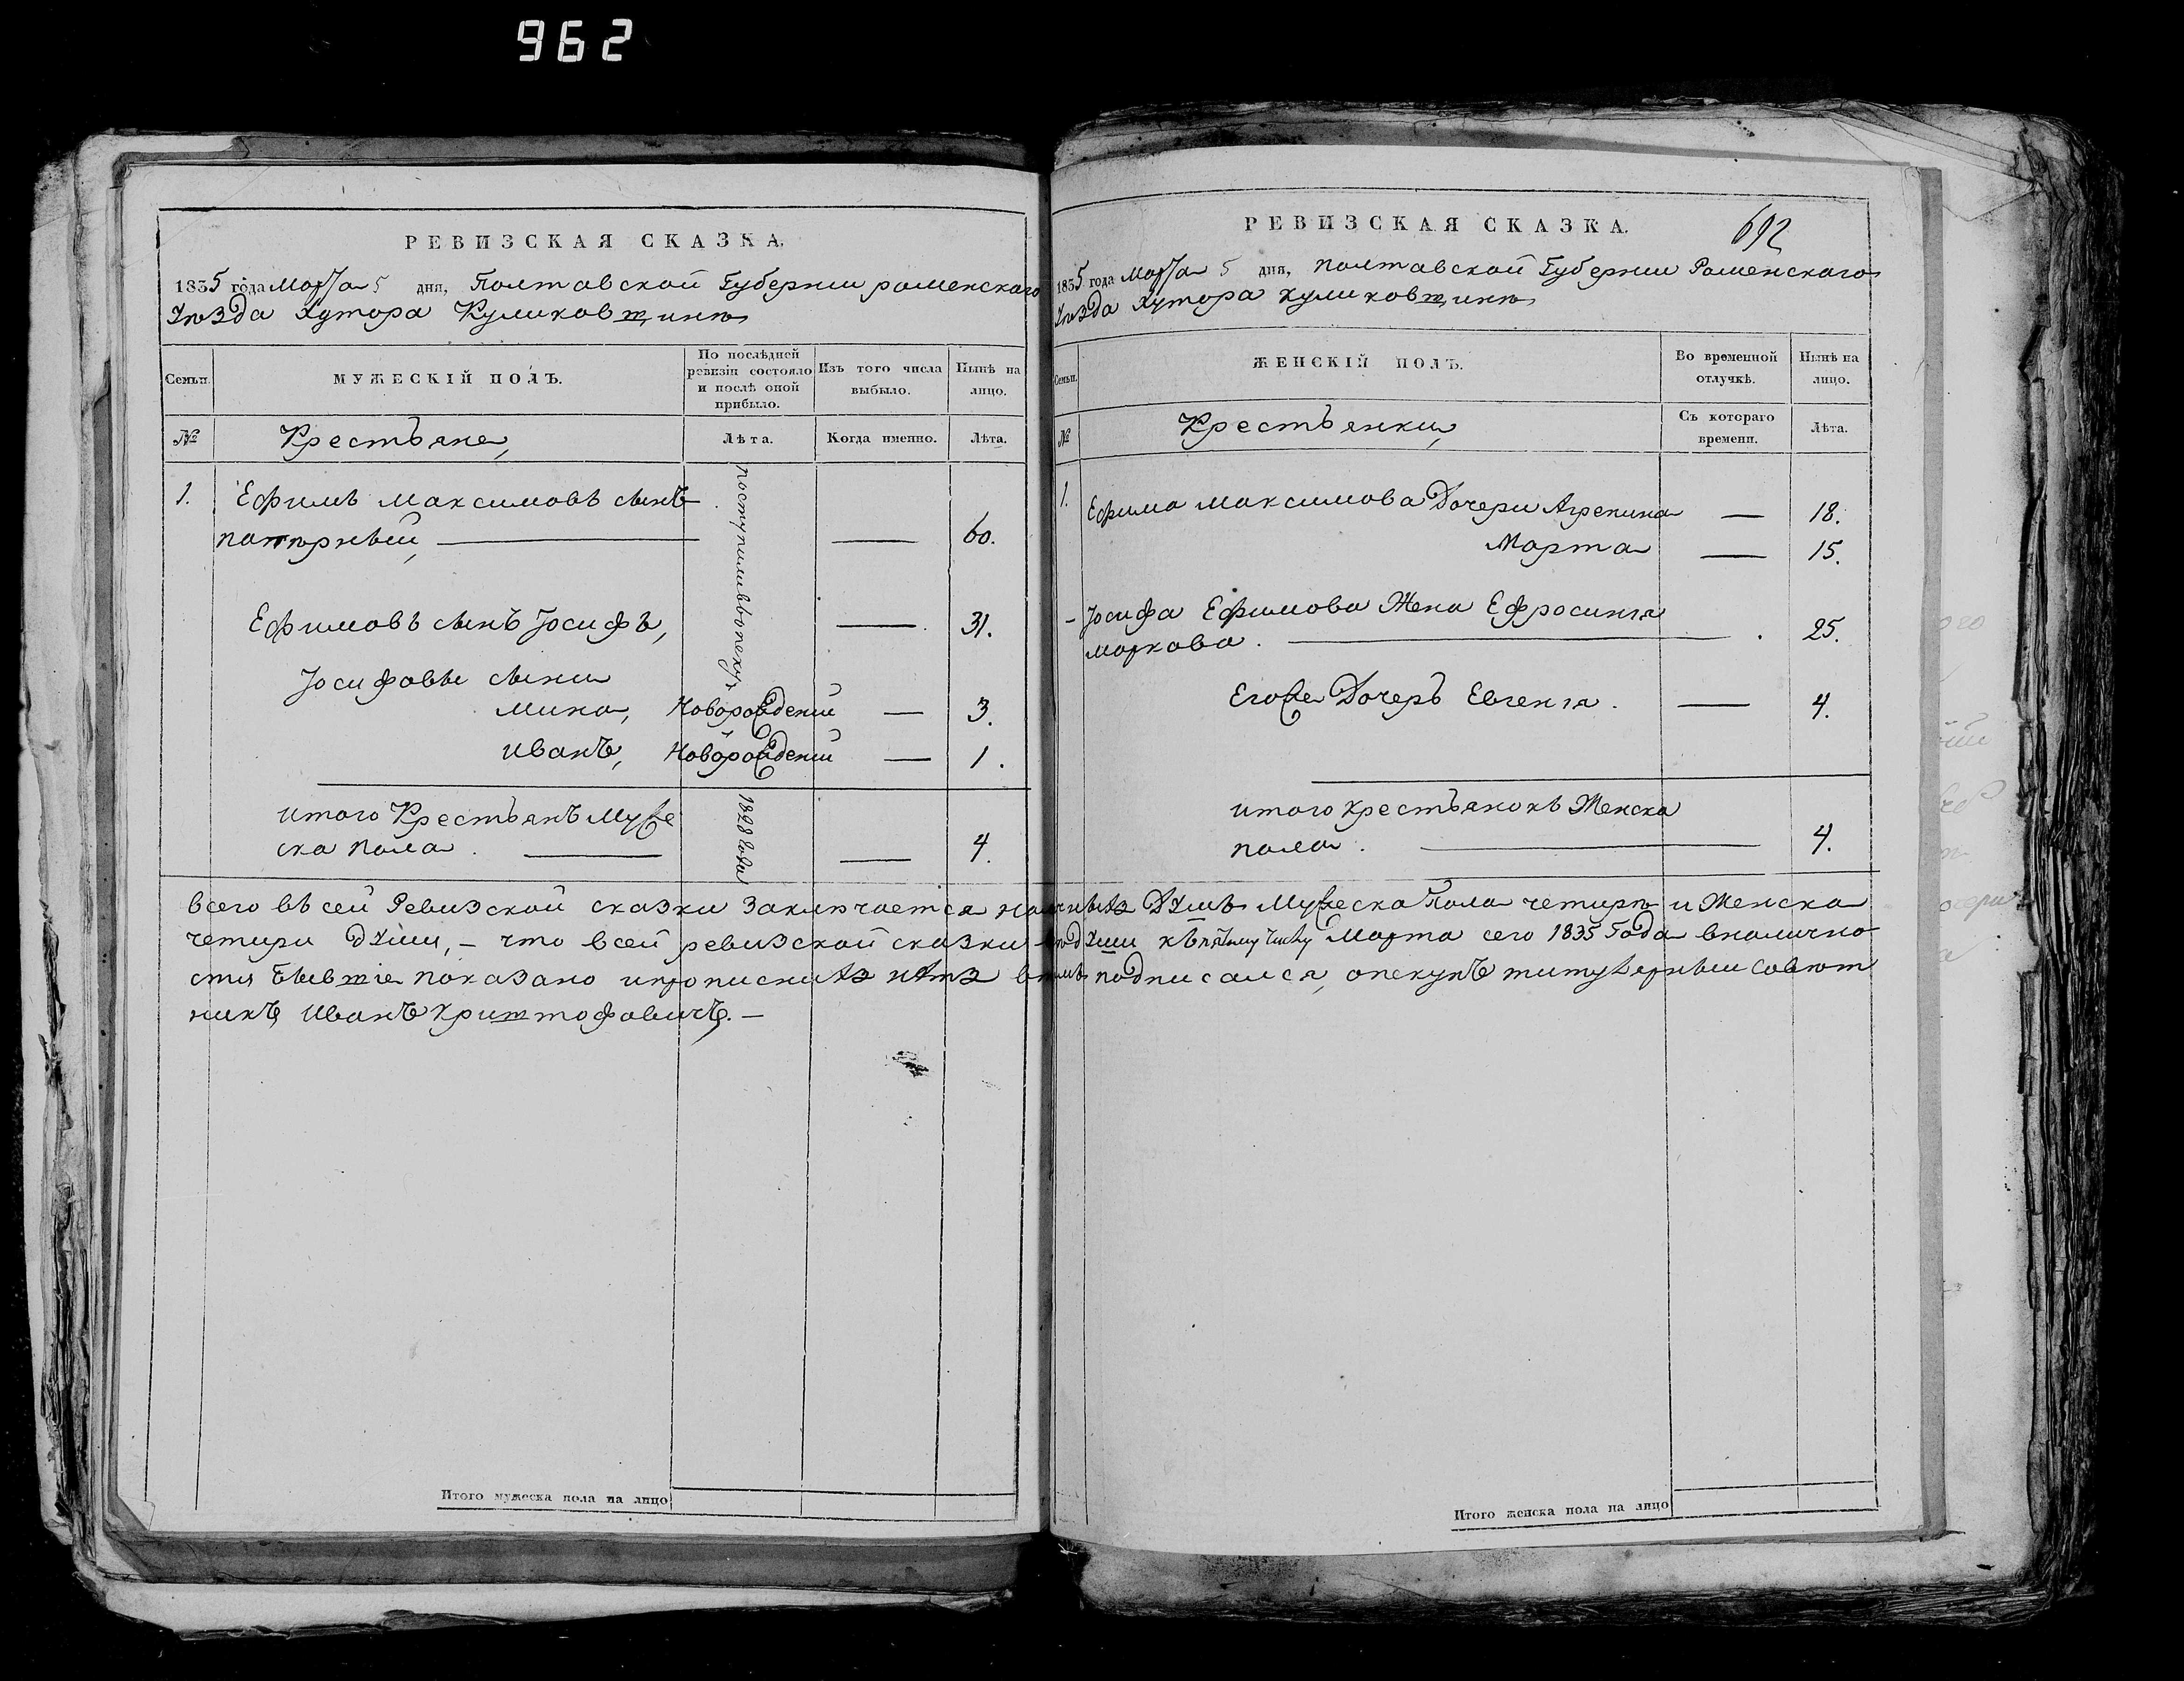 962
РЕВИЗСКАЯ СКАЗКА.
1835 года Марта 5 дня, Полтавской Губернии роменского
Уѣзда Хутора Куликовщинѣ
Семьи.
МУЖЕСКІЙ ПОЛЪ.
По послѣдней
ревизіи состояло
и послѣ оной
прибыло.
Изъ того числа
выбыло.
Нынѣ на
лицо.
№
Крестьяне,
Лѣта.
Когда именно.
Лѣта.
1. Ефимъ Максимовъ сынъ
— 60.
Ефимовъ сынъ Іосифъ, — 31.
Іосифовы сыни
Мина, Новорожденій — 3.
Иванъ, Новорожденій — 1.
поступили въ опеку
1828 года
итого Крестьянъ Муже
ска пола. — — 4.
Итого мужеска пола на лицо
РЕВИЗСКАЯ СКАЗКА.
692
1835 года Марта 5 дня, полтавской Губернии Роменского
Уѣзда Хутора куликовщинѣ
Семьи.
ЖЕНСКІЙ ПОЛЪ.
Во временной
отлучкѣ.
Нынѣ на
лицо.
№
Крестьянки,
Съ котораго
времени.
Лѣта.
1. Ефима Максимова Дочери Агрепина — 18.
Марта — 15.
- Іосифа Ефимова Жена Ефросинія
Маркова. — 25.
Егоже Дочеръ Евгенія. — 4.
итого крестьянокъ Женска
пола. — 4.
всего въ сей Ревизской сказки заключается наличныхъ Душъ Мужеска Пола четирѣ и Женска
четири души, - что всей ревизской сказки всѣ души къ пятому числу Марта сего 1835 Года вналично
стя бывшіе показано ипрописныхъ нѣтъ втомъ подписался, опекунъ титулярный Совѣт
никъ Иванъ Криштофовичъ. —
Итого женска пола на лицо